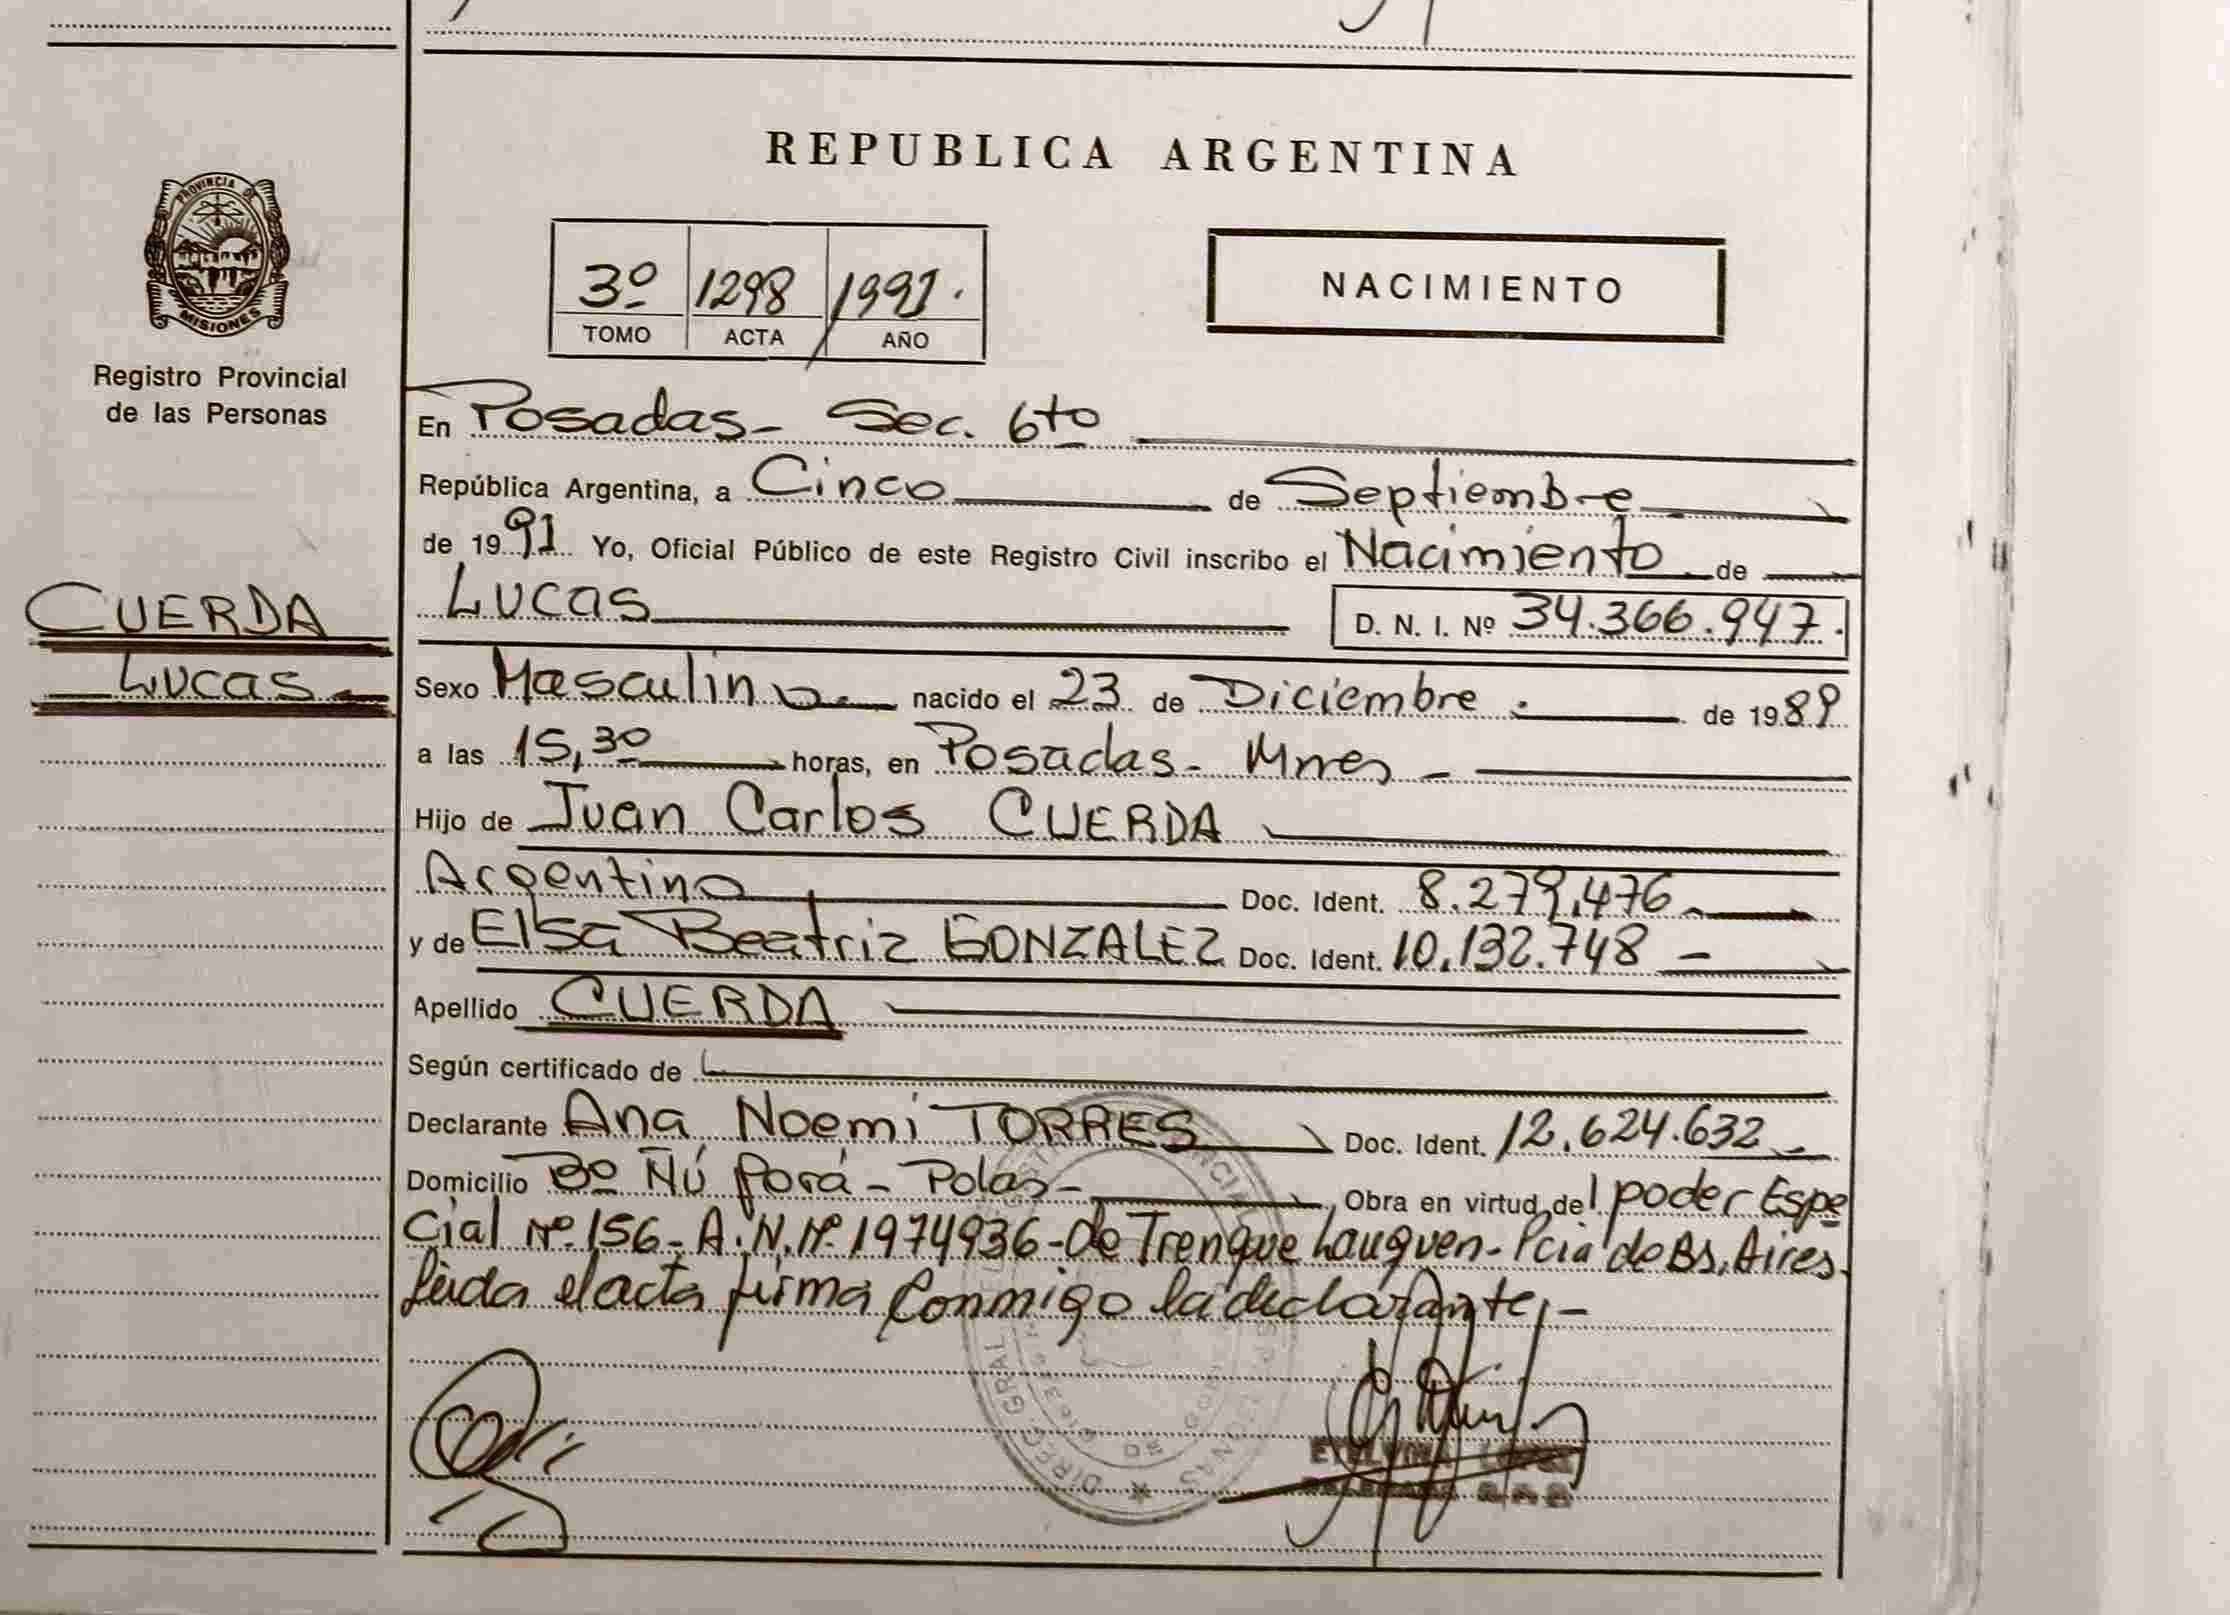 REPUBLICA ARGENTINA
PROVINCIA DE
MISIONES
Registro Provincial
de las Personas
3º 1298 1991.
TOMO ACTA AÑO
NACIMIENTO
En Posadas - Sec. 6to
República Argentina, a Cinco de Septiembre
de 1991 Yo, Oficial Público de este Registro Civil inscribo el Nacimiento de
Lucas D. N. I. Nº 34.366.947.
CUERDA
Lucas
Sexo Masculino nacido el 23 de Diciembre de 1989
a las 15,30 horas, en Posadas - Mnes -
Hijo de Juan Carlos CUERDA
Argentino Doc. Ident. 8.279.476
y de Elsa Beatriz GONZALEZ Doc. Ident. 10.132.748 -
Apellido CUERDA
Según certificado de
Declarante Ana Noemi TORRES Doc. Ident. 12.624.632
Domicilio Bº Ñú Porá - Pdas - Obra en virtud de 1 poder Espe
cial Nº 156 - A.N.Nº 1974936 - de Trenque Lauquen - Pcia de Bs. Aires.
Leida el acta firma conmigo la declarante, -
DIREC. GRAL